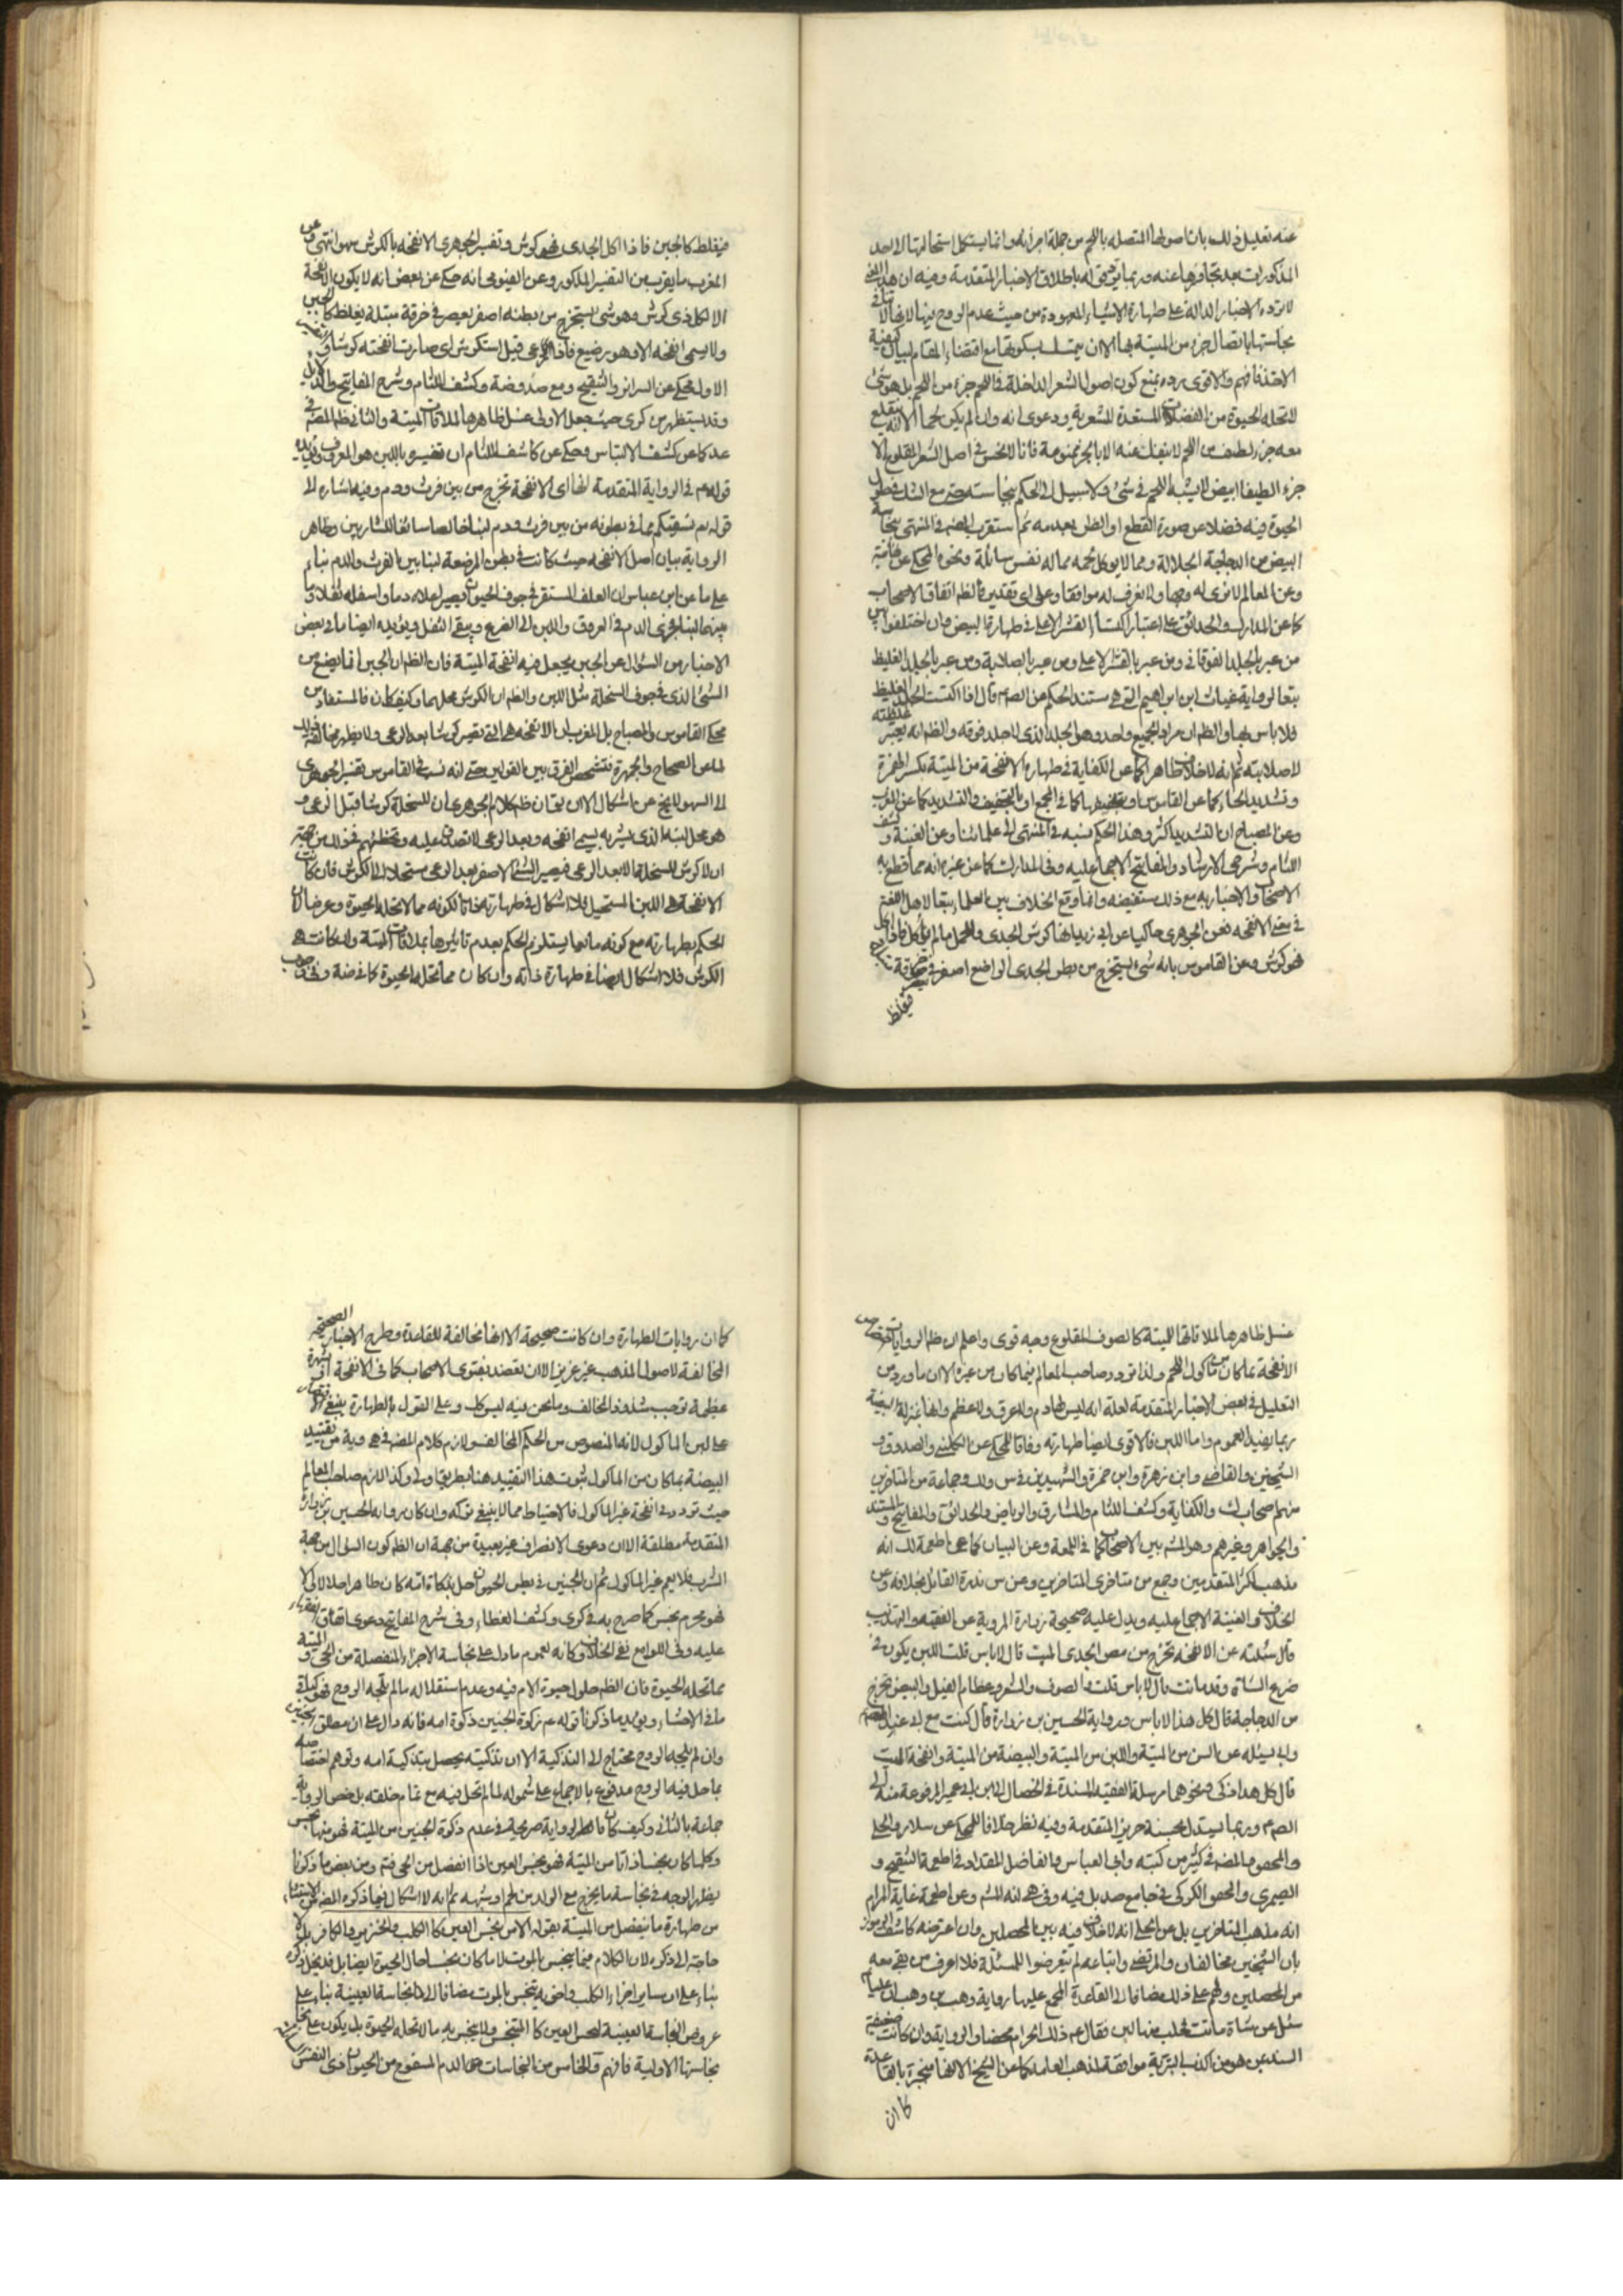 عنه تعليل ذلك بان اصولها المتصله باللحم من جملة اجزائه وانما يستكمل استحالتها الى احد
المذكورات بعد تجاوزها عنه وربما باطلاق الاخبار المتقدمة وفيه ان هذا
لا ترده الاخبار الدالة على طهارة الاشياء المعهودة من حيث عدم الروح فيها لانها لا
نجاستها باتصال جزء من الميتة بها الا ان يتمسك بسكوتها مع اقتضاء المقام لبيان كيفية
الاخذ فافهم والاقوى رده بمنع كون اصول الشعر الداخلة في اللحم جزء من اللحم بل هو شئ
لا تحله الحيوة من الفضلات المستعدة للشعرية ودعوى انه وان لم يكن لحما الا انه ينقلع
معه جزء لطيف من اللحم لا ينفك عنه الا بالجز ممنوعة فانا لا نحس في اصل الشعر المقلوع الا
جزء الطيفا ابيض لا يشبه اللحم في شئ ولا سبيل الى الحكم بنجاسته حتى مع الشك في حلول
الحيوة فيه فضلا عن صورة القطع او الظن بعدمه ثم استقرب المصنف في المنتهى نجاسة
البيض من الدجاجة الجلالة ومما لا يوكل لحمه مما له نفس سائلة ونحوه المحكى عن
وعن المعالم لا نرى له وجها ولا نعرف له موافقا وعلى اى تقدير فالظم اتفاق الاصحاب
كما عن المدارك والحدائق على اعتبار اكتساء القشر الاعلى في طهارة البيض وان اختلفوا بين
من عبر بالجلد الفوقانى ومن عبر بالقشر الاعلى ومن عبر بالصلابة ومن عبر بالجلد الغليظ
تبعا لرواية غياث ابن ابراهيم التى هى مستند الحكم عن الصم قال اذا اكتست الجلد الغليظ
فلا باس بها والظم ان مراد الجميع واحد وهو الجلد الذى لا جلد فوقه والظم انه يعتبر
لا صلابته ثم انه لا خلاف ظاهرا كما عن الكفاية في طهارة الانفحة من الميتة بكسر الهمزة
وتشديد الحاء كما عن القاموس او بتخفيفها كما في المجمع او بالتخفيف والتشديد كما عن المغرب
وعن المصباح ان التشديد اكثر وهذا الحكم نسبه في المنتهى الى علمائنا وعن الغنية وكشف
اللثام وشرحى الارشاد والمفاتيح الاجماع عليه وفي المدارك كما عن غيره انه مما قطع به
الاصحاب والاخبار به مع ذلك مستفيضه وانما وقع الخلاف بين العلماء تبعا لاهل اللغة
في معنى الانفحه فعن الجوهرى حاكيا عن ابى زيد انها كرش الجدى والحمل ما لم ياكل فاذا اكل
فهو كرش وعن القاموس بانه شئ يستخرج من بطن الجدى الراضع اصفر فيعصر
فيغلظ
فيغلظ كالجبن فاذا اكل الجدى فهو كرش وتفسير الجوهرى الانفحه بالكرش سهو انتهى وعن
المغرب ما يقرب من التفسير المذكور وعن الفيومى انه حكى عن بعض انه لا يكون الانفحة
الا لكل ذى كرش وهو شئ يستخرج من بطنه اصفر يعصر في خرقة مبتلة يغلظ كالجبن
ولا يسمى انفحه الا وهو رضيع فاذا رعى قيل استكرش اى صارت انفحته كرشا
الاول محكى عن السرائر والتنقيح ومع صد وضة وكشف اللثام وشرح المفاتيح
وقد يستظهر من كرى حيث جعل الاولى غسل ظاهرها لملاقات الميتة والثانى ظم المصنف في
عد كما عن كشف الالتباس وحكى عن كاشف اللثام ان تفسيره باللبن هو المعروف
قوله عم في الرواية المتقدمة انها اى الانفحة تخرج من بين فرث ودم وفيه اشاره الى
قوله تع نسقيكم مما في بطونه من بين فرث ودم لبنا خالصا سائغا للشاربين وظاهر
الرواية بيان اصل الانفحه حيث كانت في بطن المرضعة لبنا بين الفرث والدم بناء
على ما عن ابن عباس ان العلف المستقر في جوف الحيوان يصير اعلاه دما واسفله ثفلا وما
بينهما لبنا فيجرى الدم في العروق واللبن الى الضرع ويبقى الثفل ويؤيده ايضا ما في بعض
الاخبار من السؤال عن الجبن يجعل فيه انفحة الميتة فان الظم ان الجبن انما يصنع من
الشئ الذى في جوف السخلة مثل اللبن والظم ان الكرش محلهما وكيف كان فالمستفاد من
محكى القاموس والمصباح بل المغرب ان الانفحه هى التى تصير كرشا بعد الرعى ولا يظهر مخالفته لذلك
لما عن الصحاح والجمهرة فتشخص الفرق بين القولين حتى انه نسب في القاموس تفسير الجوهرى
الى السهو لا يخ عن اشكال الا ان يقال ان ظ كلام الجوهرى ان للسخلة كرشا قبل الرعى و
هو محل لبنه الذى يشربه يسمى انفحه وبعد الرعى لا تصدق عليه
ان لا كرش للسخلة الا بعد الرعى فيصير الشئ الاصفر بعد الرعى مستحيلا الى الكرش فان كانت
الانفحة هى اللبن المستحيل فلا اشكال في طهارته ذاتا لكونه مما لا تحله الحيوة
الحكم بطهارته مع كونه مايعا يستلزم الحكم بعدم تاثيرها بملاقات الميتة وان كانت هى
الكرش فلا اشكال ايضا في طهارة ذاته وان كان مما تحله الحيوة كما في ضة وفي وجوب
غسل ظاهرها لملاقاتها الميتة كالصوف المقلوع وجه قوى واعلم ان ظم الروايات
الانفحة بما كان من ماكول اللحم ولذا تردد صاحب المعالم فيما كان من غيره الا ان ما ورد من
التعليل في بعض الاخبار المتقدمة لعلة انه ليس لها دم ولا عرق ولا عظم وانها بمنزلة البيضة
ربما يفيد العموم واما اللبن فالاقوى ايضا طهارته وفاقا للمحكى عن الكلينى والصدوق و
الشيخين والقاضى وابن زهرة وابن حمزة والشهيدين في س ولك وجماعة من المتاخرين
منهم صحاب ك والكفاية وكشف اللثام والمشارق والرياض والحدائق والمفاتيح والمستند
والجواهر وغيرهم وهو المشه بين الاصحاب كما في اللمعة وعن البيان كما عن اطعمة لك انه
مذهب اكثر المتقدمين وجمع من متاخرى المتاخرين وعن س ندرة القائل بخلافه وعن
الخلاف والغنية الاجماع عليه ويدل عليه صحيحة زرارة المروية عن الفقيه والتهذيب
قال سئلته عن الانفحه تخرج من الجدى الميت قال لا باس قلت اللبن يكون في
ضرع الشاة وقد ماتت قال لا باس قلت الصوف والشعر وعظام الفيل والبيض تخرج
من الدجاجة قال كل هذا لا باس ورواية الحسين بن زرارة قال كنت مع ابى عند
وابى يسئله عن السن من الميتة واللبن من الميتة والبيضة من الميتة وانفحة الميت
قال كل هذا ذكى ونحوهما مرسلة الفقيه المسندة في الخصال الى ابن ابى عمير المرفوعة منه الى
الصم وربما يستدل بحسنة حريز المتقدمة وفيه نظر خلافا للمحكى عن سلار والحلى
والمحقق والمصنف في كثير من كتبه وابى العباس والفاضل المقداد في اطعمة التنقيح و
الصيمرى والمحقق الكركى في جامع صد بل فيه وفي هى انه المشه وعن اطعمة غاية المرام
انه مذهب المتاخرين بل عن الحلى انه لا خلاف فيه بين المحصلين وان اعترضه كاشف الرموز
بان الشيخين مخالفان والمرتضى واتباعه لم يتعرضوا للمسئلة فلا اعرف من بقى معه
من المحصلين ولهم على ذلك مضافا الى القاعدة المجمع عليها رواية وهب بن وهب ان عليا
سئل عن شاة ماتت فحلب منها لبن فقال عم ذلك الحرام محضا والرواية وان كانت ضعيفة
السند بمن هو من اكذب البرية موافقة لمذهب العامة كما عن الشيخ الا انها منجبرة بالقاعدة
كما ان
كما ان روايات الطهارة وان كانت صحيحة الا انها مخالفة للقاعدة وطرح الاخبار الصحيحة
المخالفة لاصول المذهب غير عزيز الا ان تعضد بفتوى الاصحاب كما في الانفحة او شهرة
عظيمة توجب شذوذ المخالف وما نحن فيه ليس كك وعلى القول بالطهارة ينبغى الاقتصار
على لبن الماكول لانه المنصوص من الحكم المخالف ولازم كلام المصنف في هى وية من تقييد
البيضة بما كان من الماكول ثبوت هذا التقييد هنا بطريق اولى وكذا لازم صاحب المعالم
حيث تردد في انفحة غير الماكول فالاحتياط مما لا ينبغى تركه وان كان رواية الحسين بن زرارة
المتقدمة مطلقة الا ان دعوى الانصراف غير بعيدة من جهة ان الظم كون السؤال من جهة
الشرب فلا يعم غير الماكول ثم ان الجنين في بطن الحيوان حل بذكاة امه كان طاهرا حلالا والا
فهو محرم نجس كما صرح به في كرى وكشف الغطاء وفي شرح المفاتيح دعوى اتفاق الفقهاء
عليه وفي اللوامع نفى الخلاف وكانه لعموم ما دل على نجاسة الاجزاء المنفصلة من الحى والميتة
مما تحله الحيوة فان الظم حلول حيوة الام فيه وعدم استقلاله ما لم تلجه الروح فهو
ما في الاحشاء ويؤيد ما ذكرنا قوله عم ذكوة الجنين ذكوة امه فانه دال على ان مطلق الجنين
وان لم يلجه الروح محتاج الى التذكية الا ان تذكيته يحصل بتذكية امه وتوهم اختصاصه
بما حل فيه الروح مدفوع بالاجماع على شموله لما لم تحل فيه مع تمام خلقته بل خص الرواية
جماعة بالثانى وكيف كان فالرواية صريحة في عدم ذكوة الجنين من الميتة فهو منها نجس
وكلما كان نجسا ذاتا من الميتة فهو نجس العين اذا انفصل من الحى فتم ومن بعض ما ذكرنا
يظهر الوجه في نجاسة ما يخرج مع الولد من لحم وشبهه ثم انه لا اشكال فيما ذكره المصنف من الاستثناء
من طهارة ما ينفصل من الميتة بقوله الا من نجس العين كالكلب والخنزير والكافر بل لا
حاجة الى ذكره لان الكلام فيما ينجس بالموت لا ما كان نجسا حال الحيوة ايضا بل قد يخل ذكره
بناء على ان ساير اجزاء الكلب واخويه تنجس بالموت مضافا الى النجاسة العينية بناء على
عروض النجاسة العينية لنجس العين كالمتنجس ولا ينجس به ما لا تحله الحيوة بل يكون على
نجاستها الاولية فافهم والخامس من النجاسات الدم المسفوح من الحيوان ذى النفس